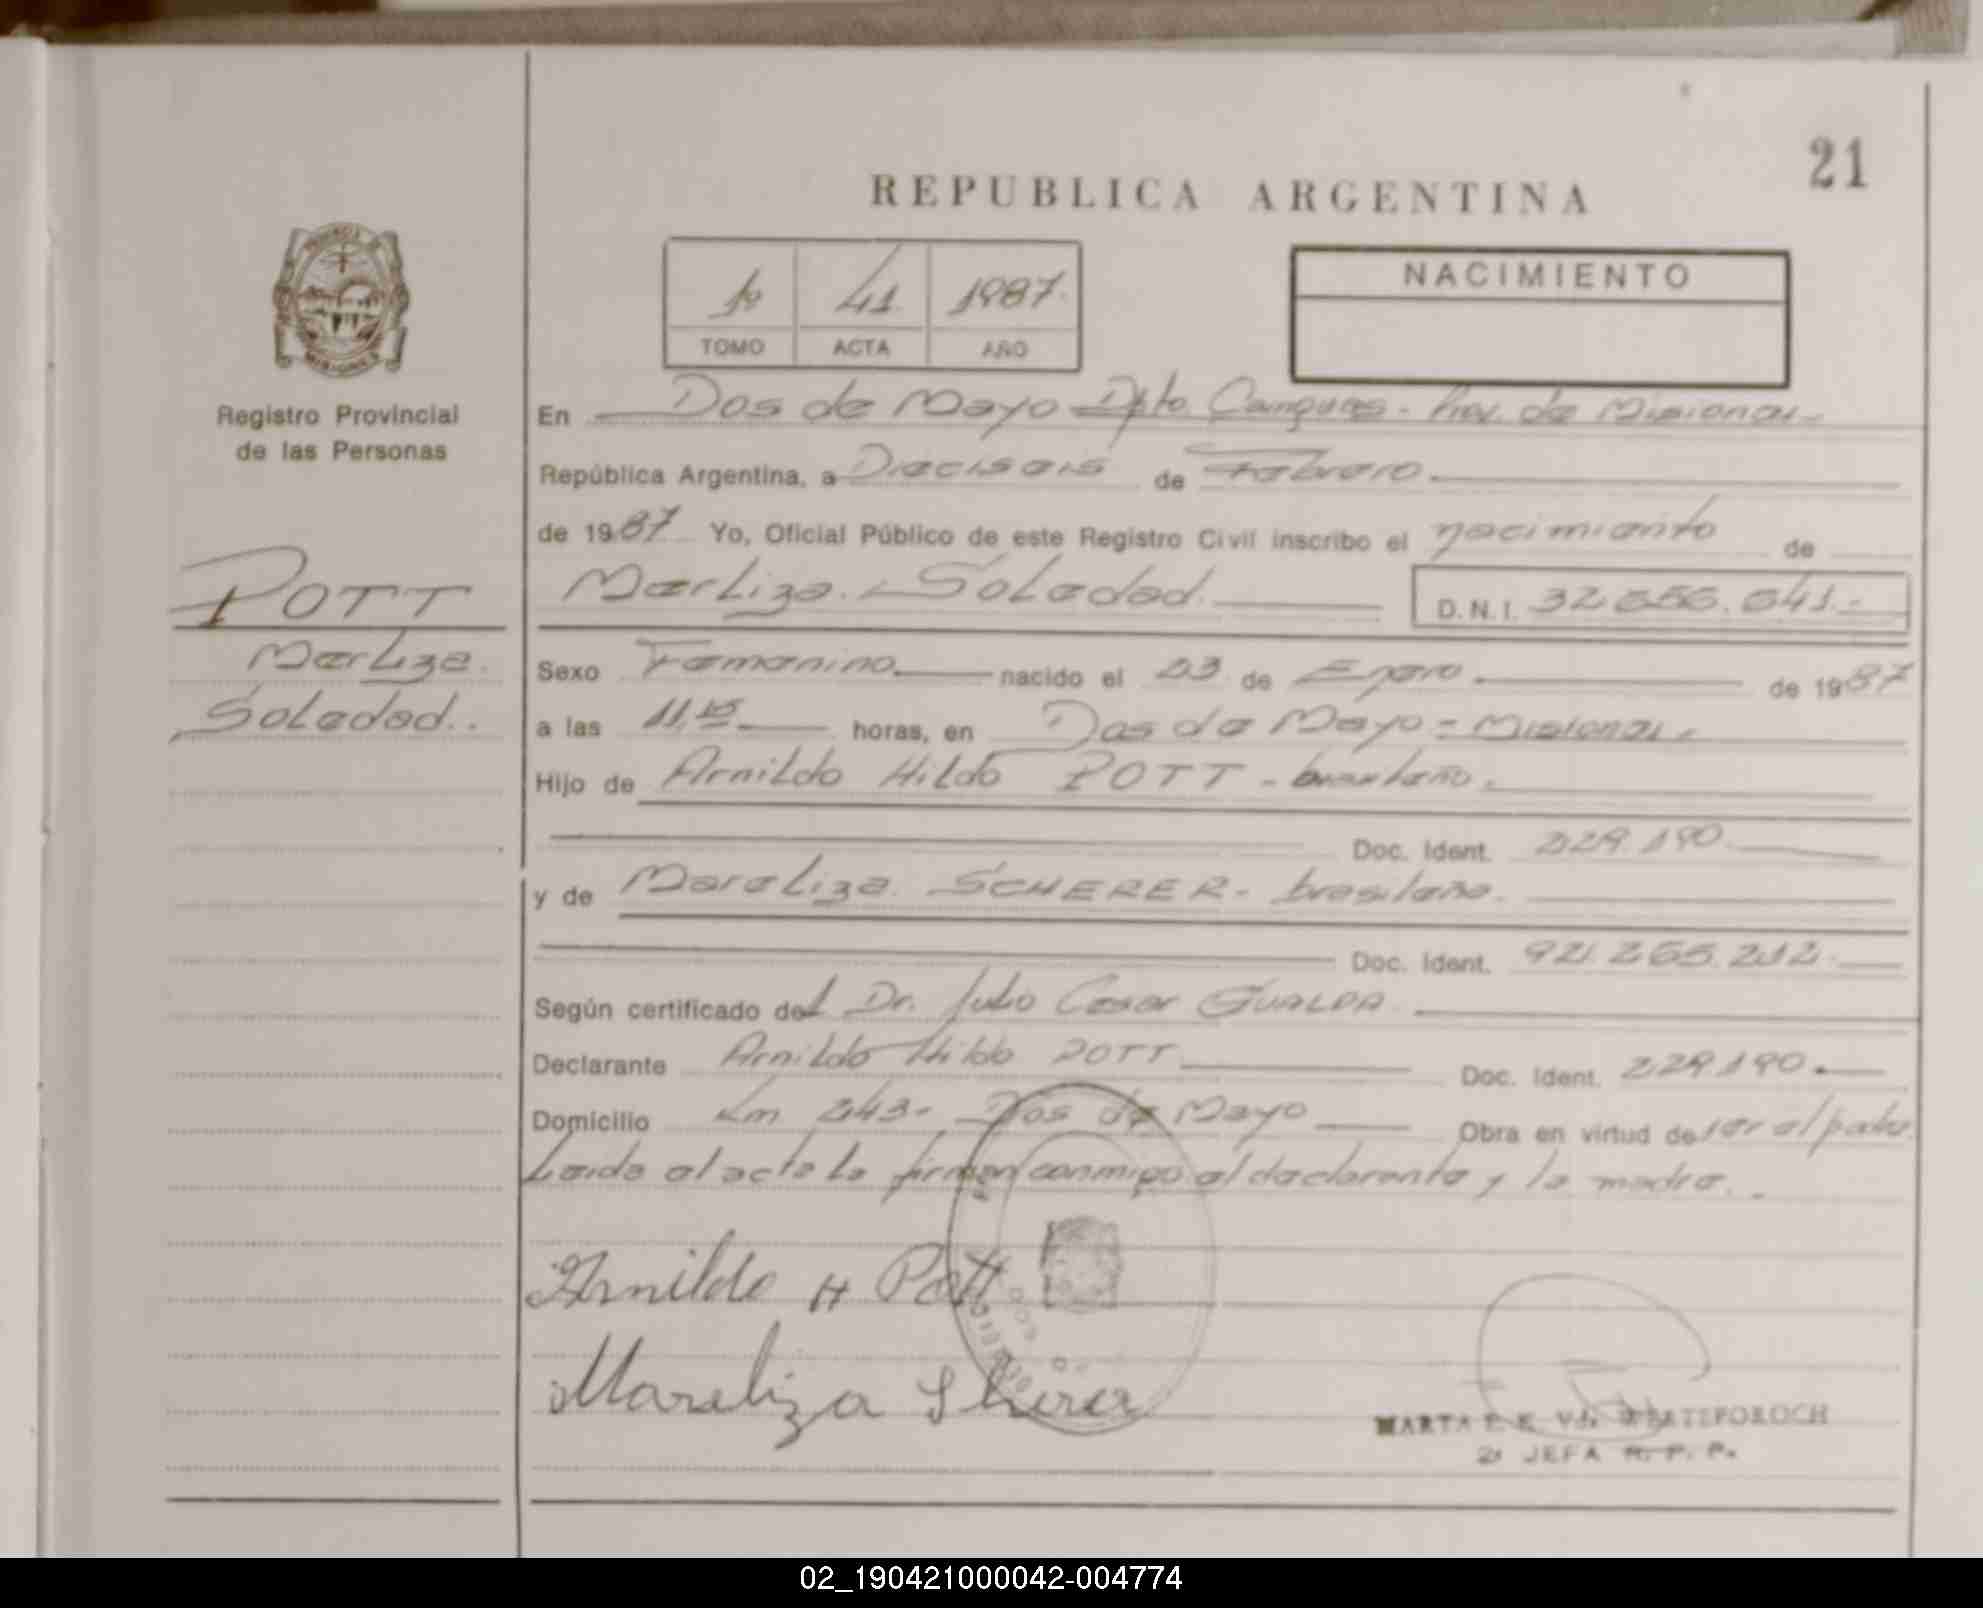 21
REPUBLICA ARGENTINA
PROVINCIA DE
MISIONES
1º 41 1987.
TOMO ACTA AÑO
NACIMIENTO
Registro Provincial
de las Personas
En Dos de Mayo Dpto. Cainguas - Prov. de Misiones -
República Argentina, a Dieciseis de Febrero
de 1987 Yo, Oficial Público de este Registro Civil inscribo el nacimiento de
POTT
Marliza
Soledad..
Marliza Soledad. D.N.I. 32.656.641.-
Sexo Femenino nacido el 03 de Enero de 1987
a las 11,15 horas, en Dos de Mayo = Misiones.-
Hijo de Arnildo Hildo POTT - brasileño.
Doc. Ident. 229.190.
y de Mareliza SCHERER - brasileña.
Doc. Ident. 921.265.212.
Según certificado del Dr. Julio Cesar GUALDA
Declarante Arnildo Hildo POTT Doc. Ident. 229.190.
Domicilio Km 243 - Dos de Mayo Obra en virtud de ser el padre.
Leida el acta la firman conmigo el declarante y la madre..
Arnildo H Pott
Mareliza Sherer
MARTA E. E. Vda.
2º JEFA R. P. P.
02_190421000042-004774